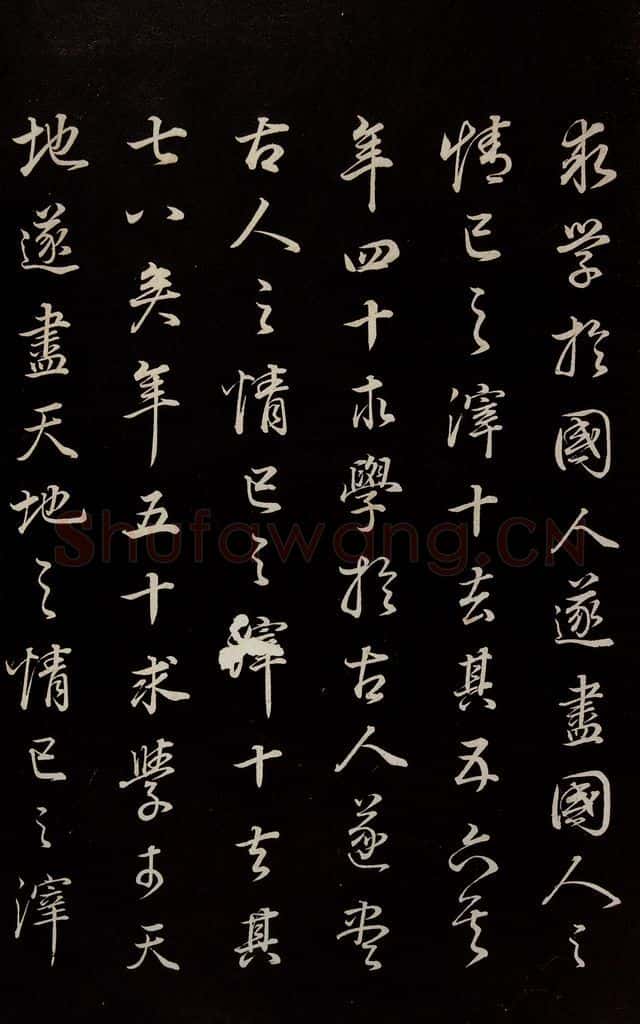 求学於國人遂盡國人之
情已之滓十去其五六矣
年四十求學於古人遂盡
古人之情已之滓十去其
七八矣年五十求學於天
地遂盡天地之情已之滓
Shufawang.CN